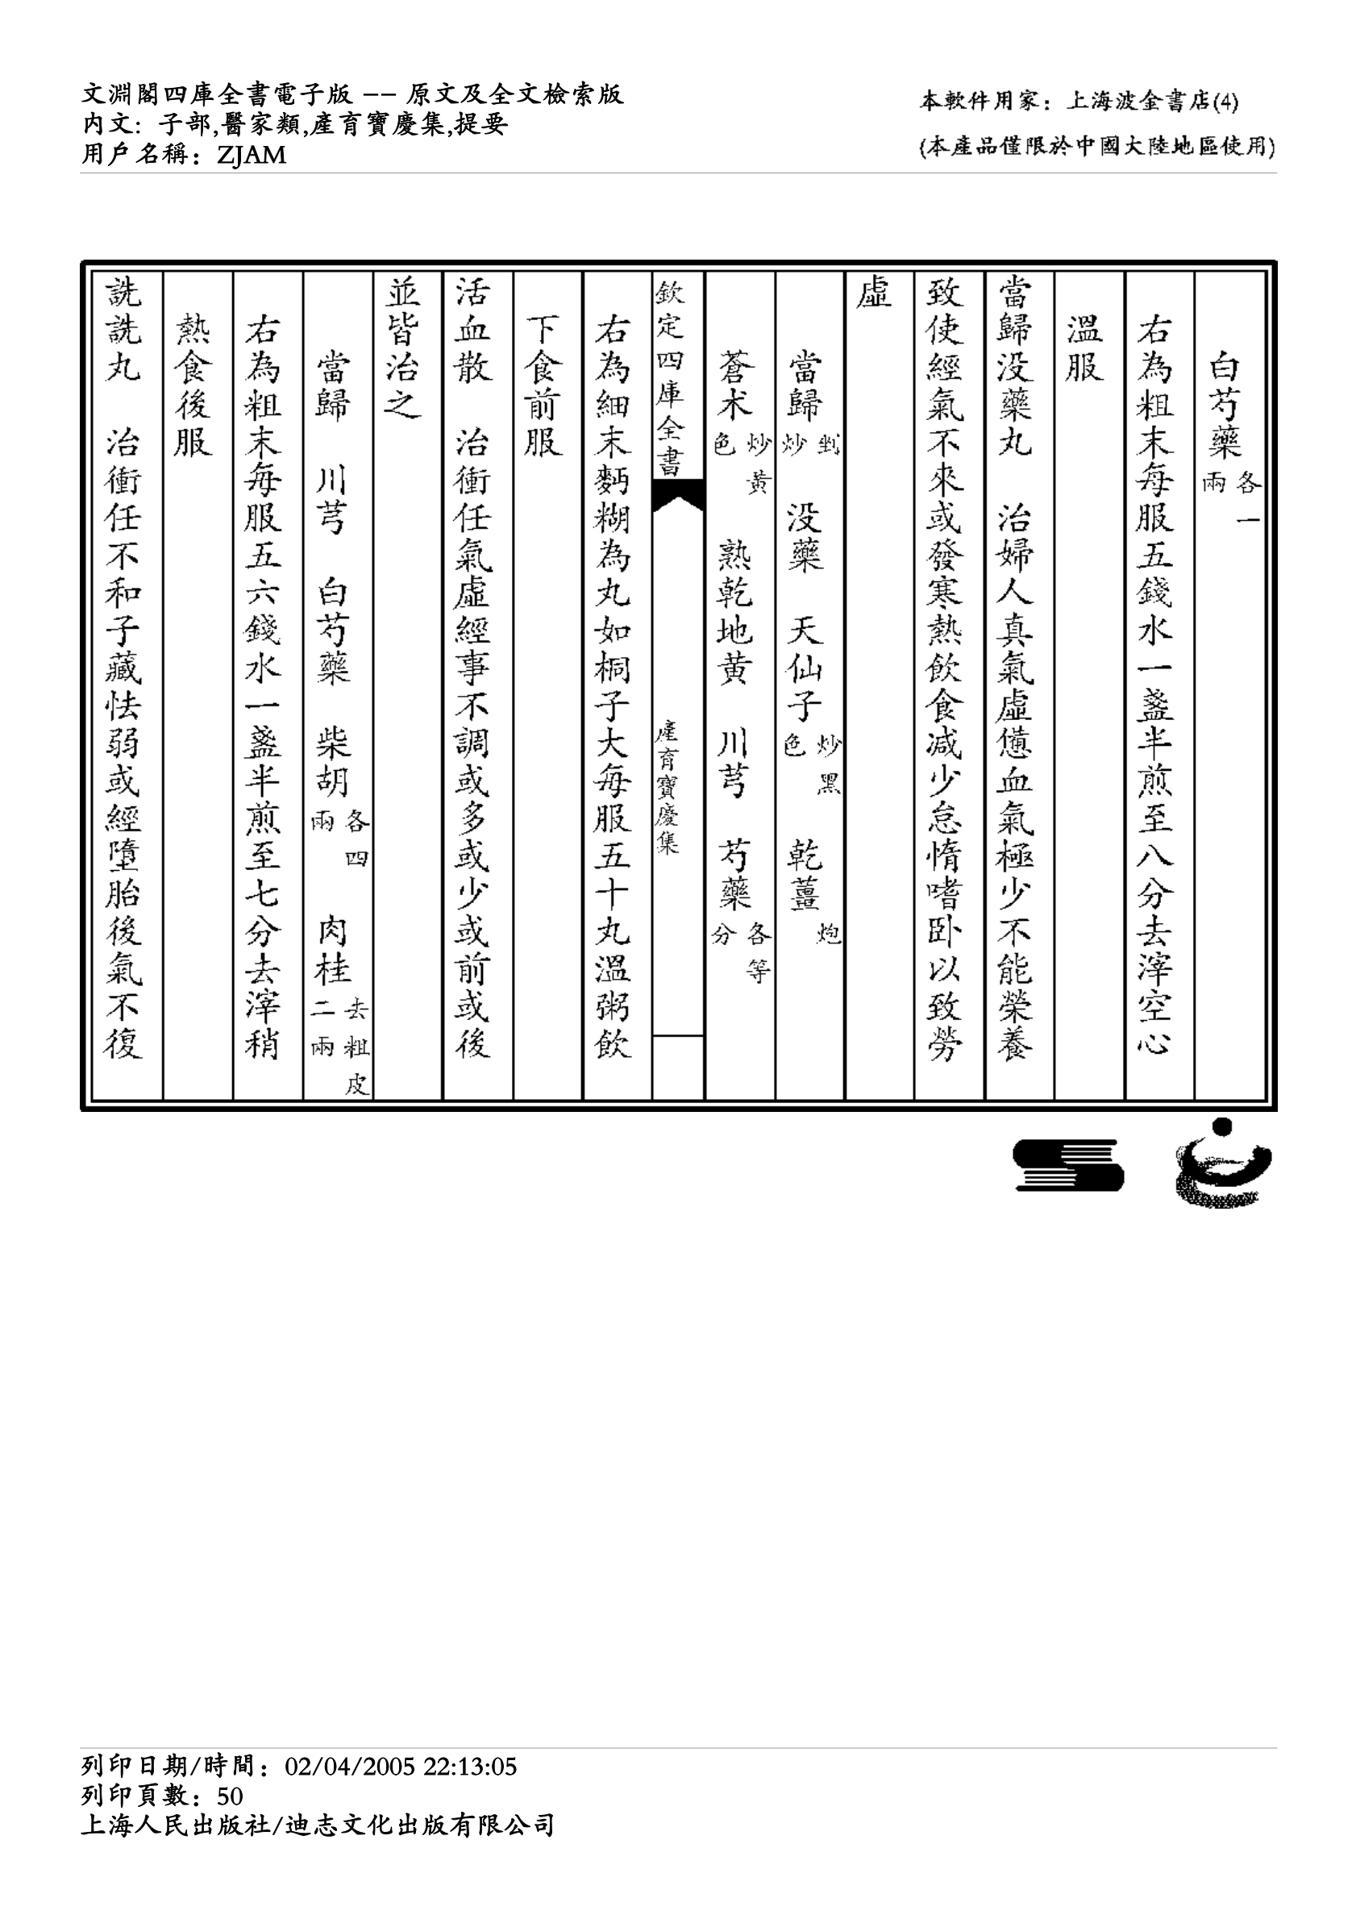 文淵閣四庫全書電子版 −− 原文及全文檢索版
內文: 子部,醫家類,產育寶慶集,提要
用戶名稱: ZJAM
本軟件用家: 上海波金書店(4)
(本產品僅限於中國大陸地區使用)
白芍藥各一兩
右為粗末每服五錢水一盞半煎至八分去滓空心
溫服
當歸没藥丸 治婦人真氣虛憊血氣極少不能榮養
致使經氣不來或發寒熱飲食減少怠惰嗜卧以致勞
虛
當歸剉炒 没藥 天仙子炒黑色 乾薑炮
蒼术炒黃色 熟乾地黄 川芎 芍藥各等分
欽定四庫全書 產育寶慶集
右為細末麪糊為丸如桐子大每服五十丸溫粥飲
下食前服
活血散 治衝任氣虛經事不調或多或少或前或後
並皆治之
當歸 川芎 白芍藥 柴胡各四兩 肉桂去粗皮二兩
右為粗末每服五六錢水一盞半煎至七分去滓稍
熱食後服
詵詵丸 治衝任不和子藏怯弱或經墮胎後氣不復
列印日期/時間: 02/04/2005 22:13:05
列印頁數: 50
上海人民出版社/迪志文化出版有限公司